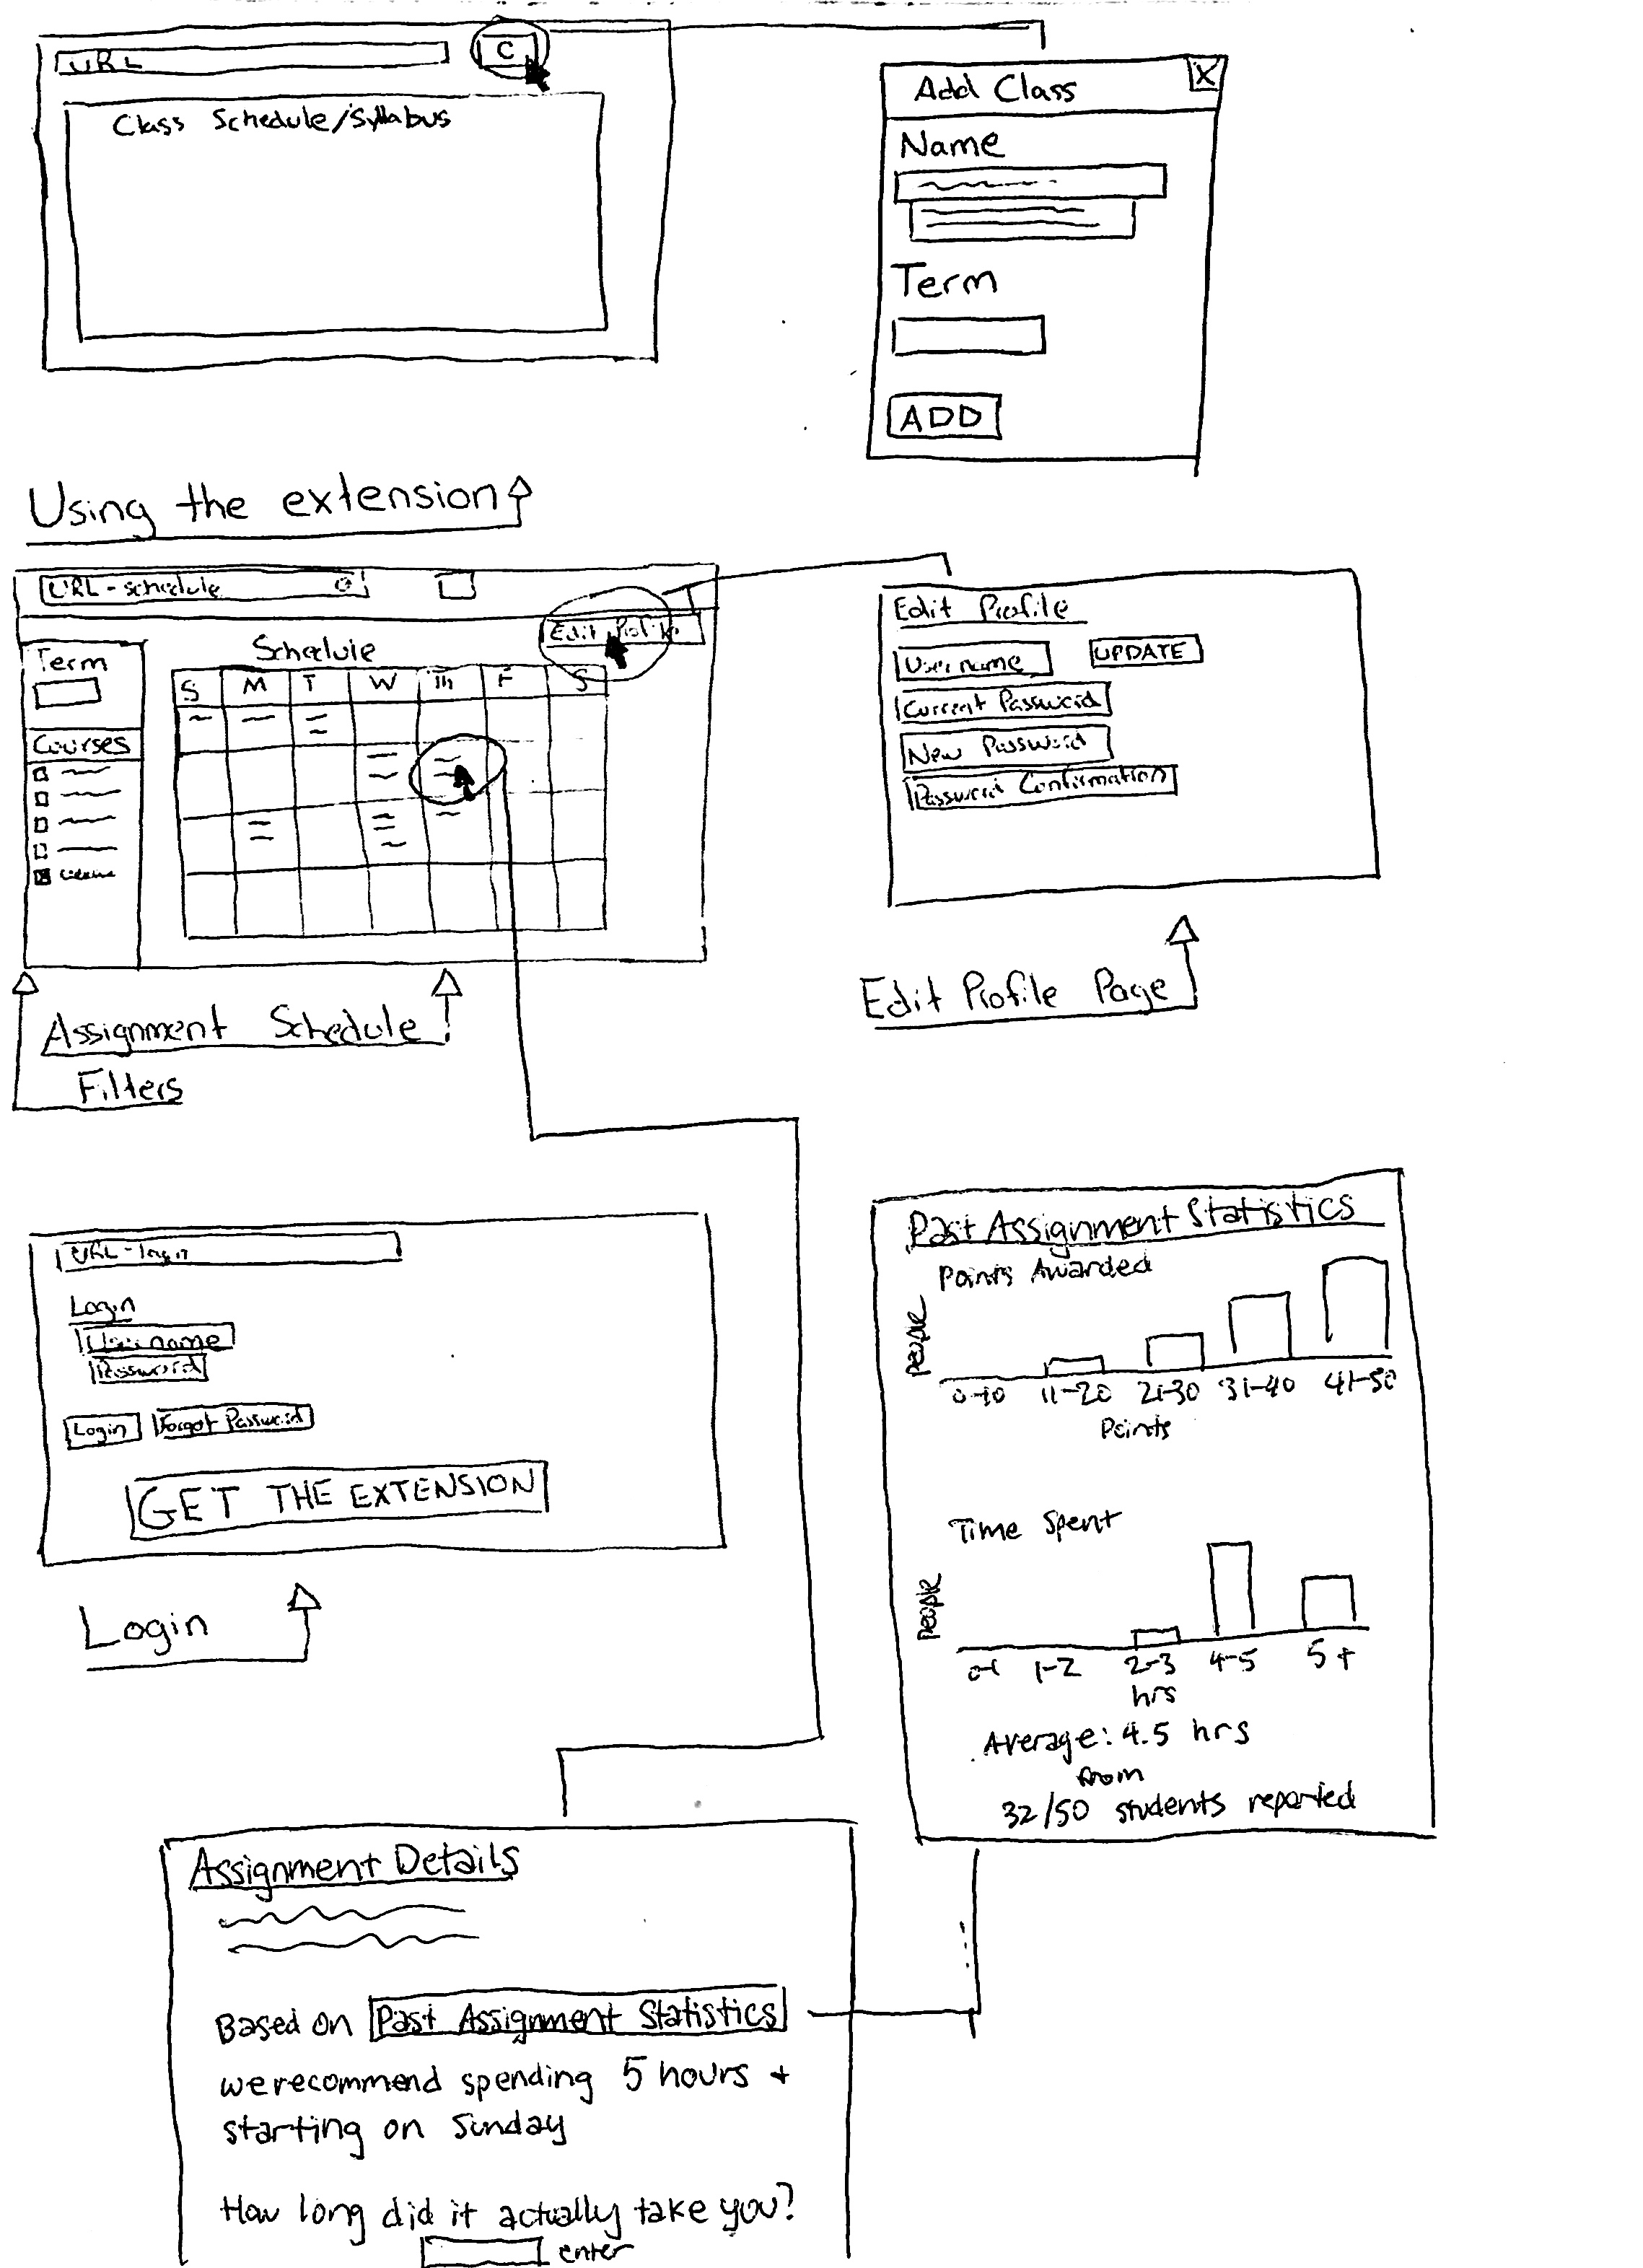 URL
C
Class Schedule/Syllabus
Add Class
X
Name
Term
ADD
Using the extension
URL - schedule
Edit Profile
Term
Schedule
S M T W Th F S
Courses
Edit Profile
Username
UPDATE
Current Password
New Password
Password Confirmation
Assignment Schedule
Filters
Edit Profile Page
URL - login
Login
Username
Password
Login
Forgot Password
GET THE EXTENSION
Login
Past Assignment Statistics
Points Awarded
People
0-10 11-20 21-30 31-40 41-50
Points
Time Spent
People
0-1 1-2 2-3 4-5 5+
hrs
Average: 4.5 hrs
from
32/50 students reported
Assignment Details
Based on Past Assignment Statistics
we recommend spending 5 hours +
starting on Sunday
How long did it actually take you?
enter